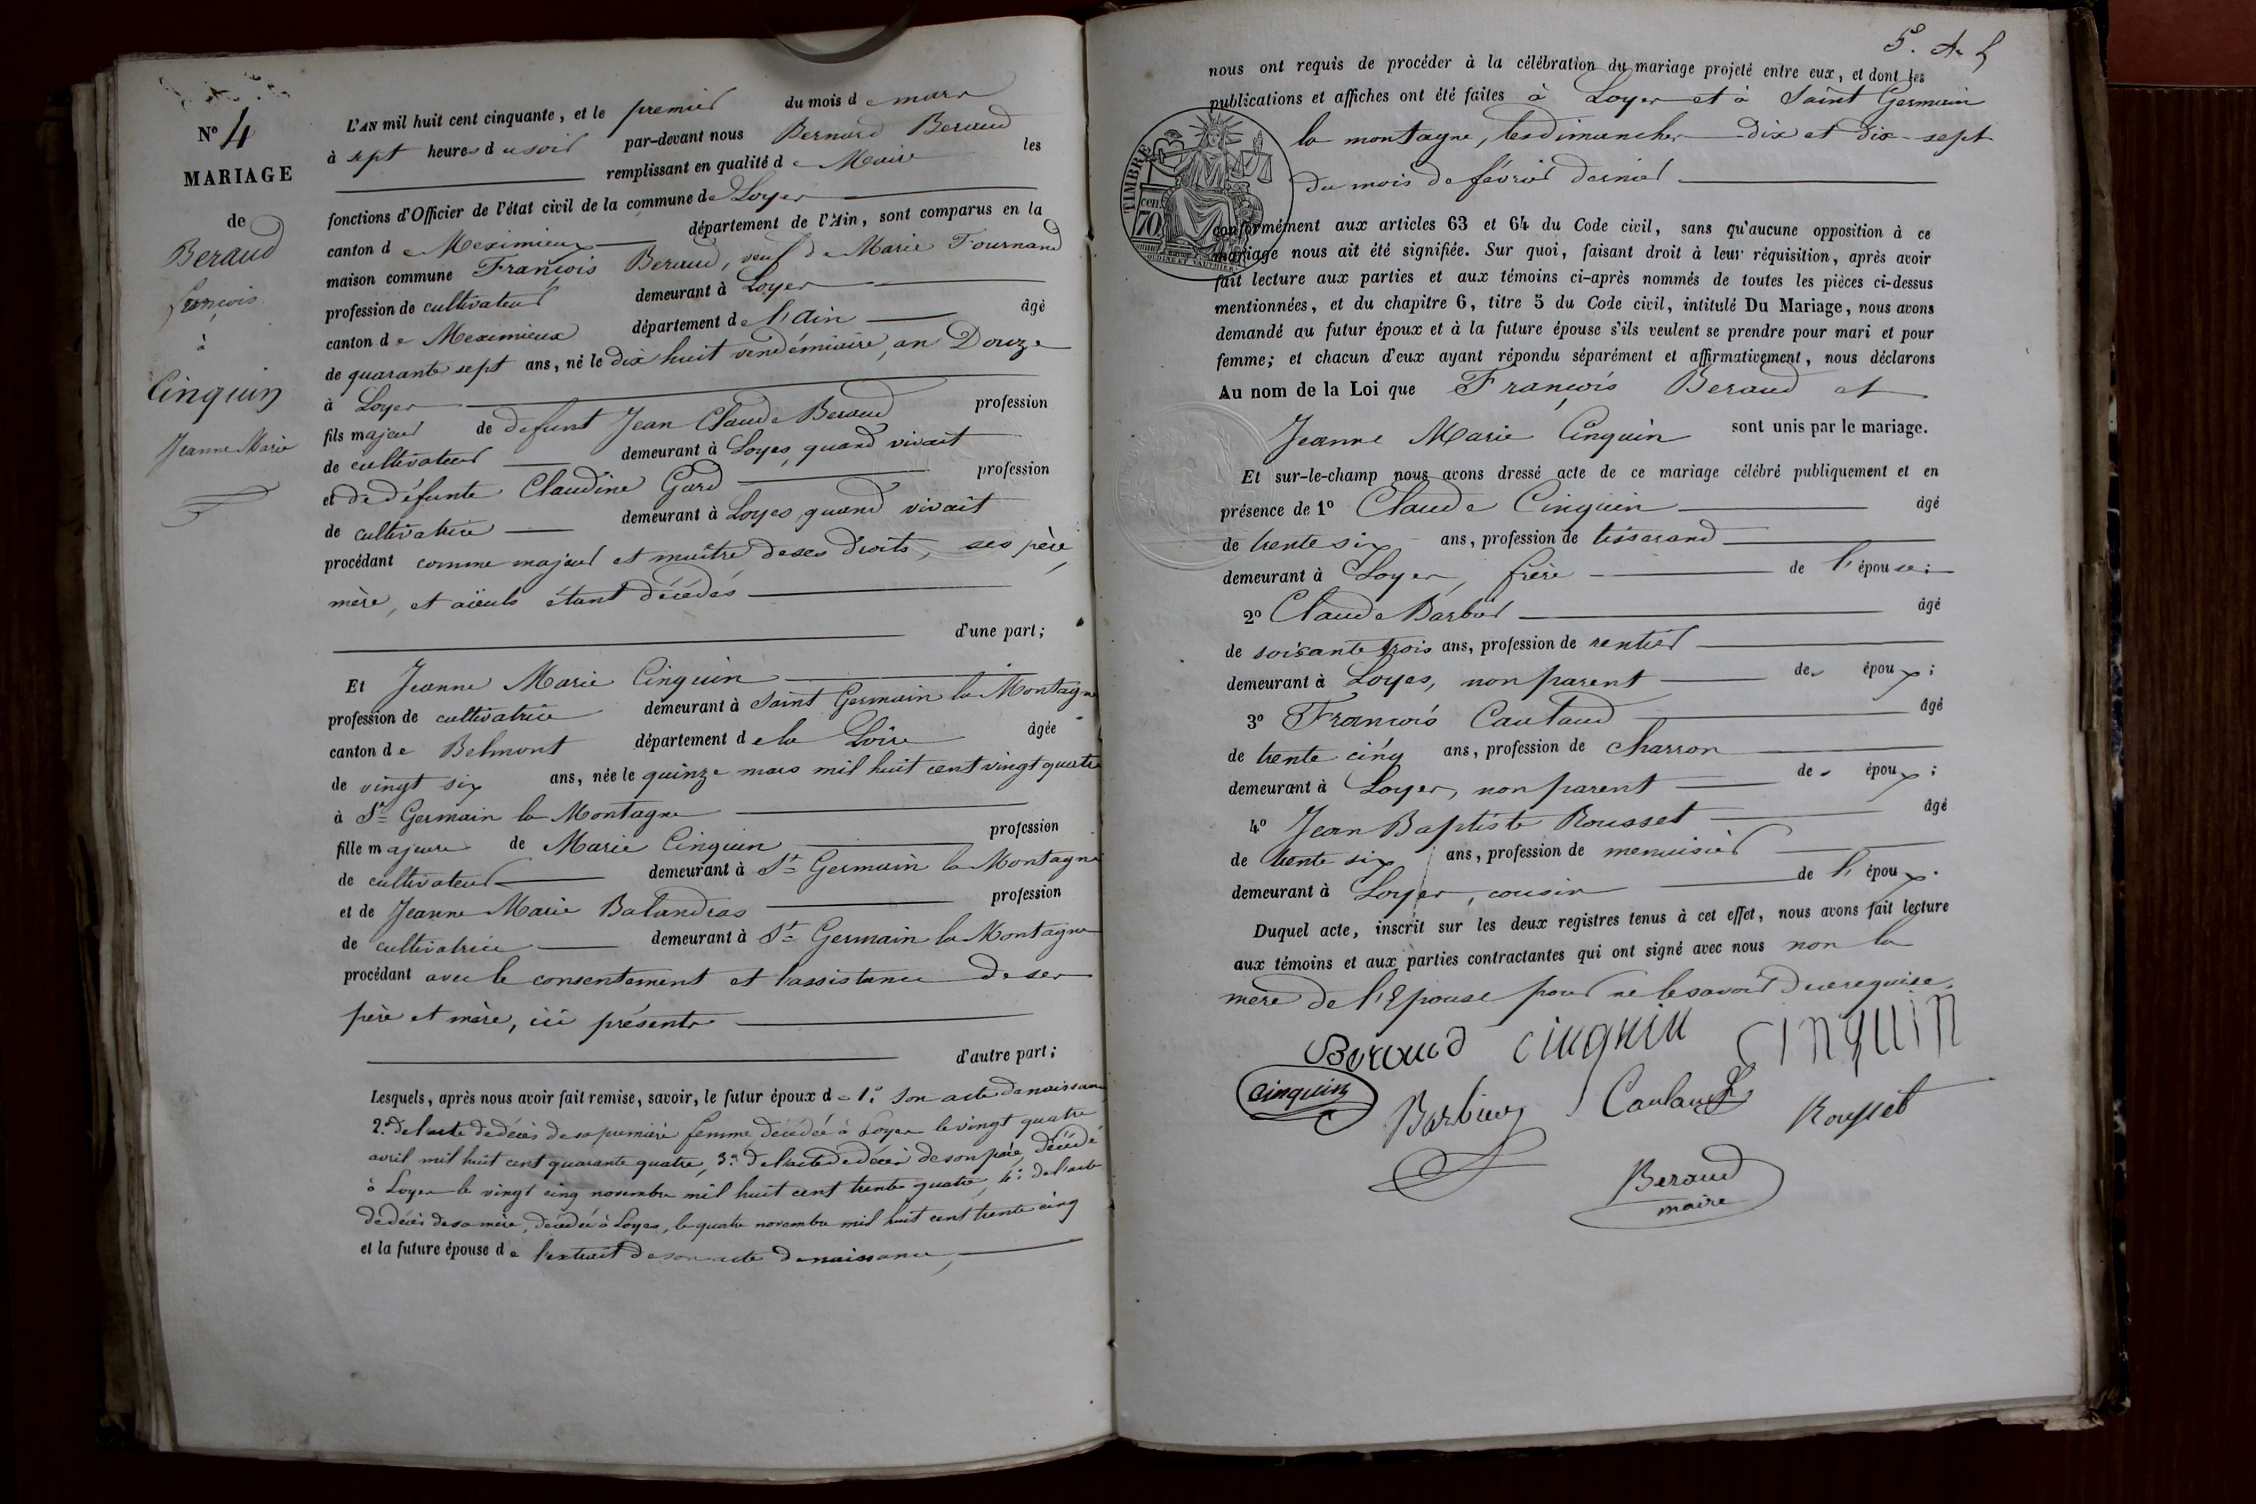 N° 4
MARIAGE
de
Beraud
françois
à
Cinquin
Jeanne Marie
L'AN mil huit cent cinquante, et le premier du mois de mars
à sept heures du soir par-devant nous Bernard Beraud
remplissant en qualité de Maire les
fonctions d'Officier de l'état civil de la commune de Loyes
canton de Meximieux département de l'Ain, sont comparus en la
maison commune François Beraud, veuf de Marie Tournand
profession de cultivateur demeurant à Loyes
canton de Meximieux département de l'Ain âgé
de quarante sept ans, né le dix huit vendémiaire, an Douze
à Loyes
fils majeur de defunt Jean Claude Beraud profession
de cultivateur demeurant à Loyes, quand vivait
et de défunte Claudine Gard profession
de cultivatrice demeurant à Loyes quand vivait
procédant comme majeur et maître de ses droits, ses père,
mère, et aïeuls étant décédés
d'une part;
Et Jeanne Marie Cinquin
profession de cultivatrice demeurant à Saint Germain la Montagne
canton de Belmont département de la Loire âgée
de vingt six ans, née le quinze mars mil huit cent vingt quatre
à St Germain la Montagne
fille majeure de Marie Cinquin profession
de cultivateur demeurant à St Germain la Montagne
et de Jeanne Marie Balandras profession
de cultivatrice demeurant à St Germain la Montagne
procédant avec le consentement et l'assistance de ses
père et mère, ici présents
d'autre part;
Lesquels, après nous avoir fait remise, savoir, le futur époux de 1° son acte de naissance
2° de l'acte de décès de sa première femme, décédée à Loyes le vingt quatre
avril mil huit cent quarante quatre, 3° de l'acte de décès de son père, décédé
à Loyes le vingt cinq novembre mil huit cent trente quatre, 4° de l'acte
de décès de sa mère, décédée à Loyes, le quatre novembre mil huit cent trente cinq
et la future épouse de l'extrait de son acte de naissance,
nous ont requis de procéder à la célébration du mariage projeté entre eux, et dont les
publications et affiches ont été faites à Loyes et à Saint Germain
la montagne, les dimanches dix et dix-sept
du mois de février dernier
TIMBRE
70 cen.
conformément aux articles 63 et 64 du Code civil, sans qu'aucune opposition à ce
mariage nous ait été signifiée. Sur quoi, faisant droit à leur réquisition, après avoir
fait lecture aux parties et aux témoins ci-après nommés de toutes les pièces ci-dessus
mentionnées, et du chapitre 6, titre 5 du Code civil, intitulé Du Mariage, nous avons
demandé au futur époux et à la future épouse s'ils veulent se prendre pour mari et pour
femme; et chacun d'eux ayant répondu séparément et affirmativement, nous déclarons
Au nom de la Loi que François Beraud et
Jeanne Marie Cinquin sont unis par le mariage.
Et sur-le-champ nous avons dressé acte de ce mariage célébré publiquement et en
présence de 1° Claude Cinquin âgé
de trente six ans, profession de tisserand
demeurant à Loyes, frère de l'épouse;
2° Claude Barbier âgé
de soixante trois ans, profession de rentier
demeurant à Loyes, non parent des époux;
3° François Cautaud âgé
de trente cinq ans, profession de charron
demeurant à Loyes, non parent des époux;
4° Jean Baptiste Rousset âgé
de trente six ans, profession de menuisier
demeurant à Loyes, cousin de l'époux.
Duquel acte, inscrit sur les deux registres tenus à cet effet, nous avons fait lecture
aux témoins et aux parties contractantes qui ont signé avec nous non la
mère de l'Epouse pour ne le savoir de ce requise.
Beraud cinquin cinquin
cinquin
Barbier Cautaud Rousset
Beraud
maire